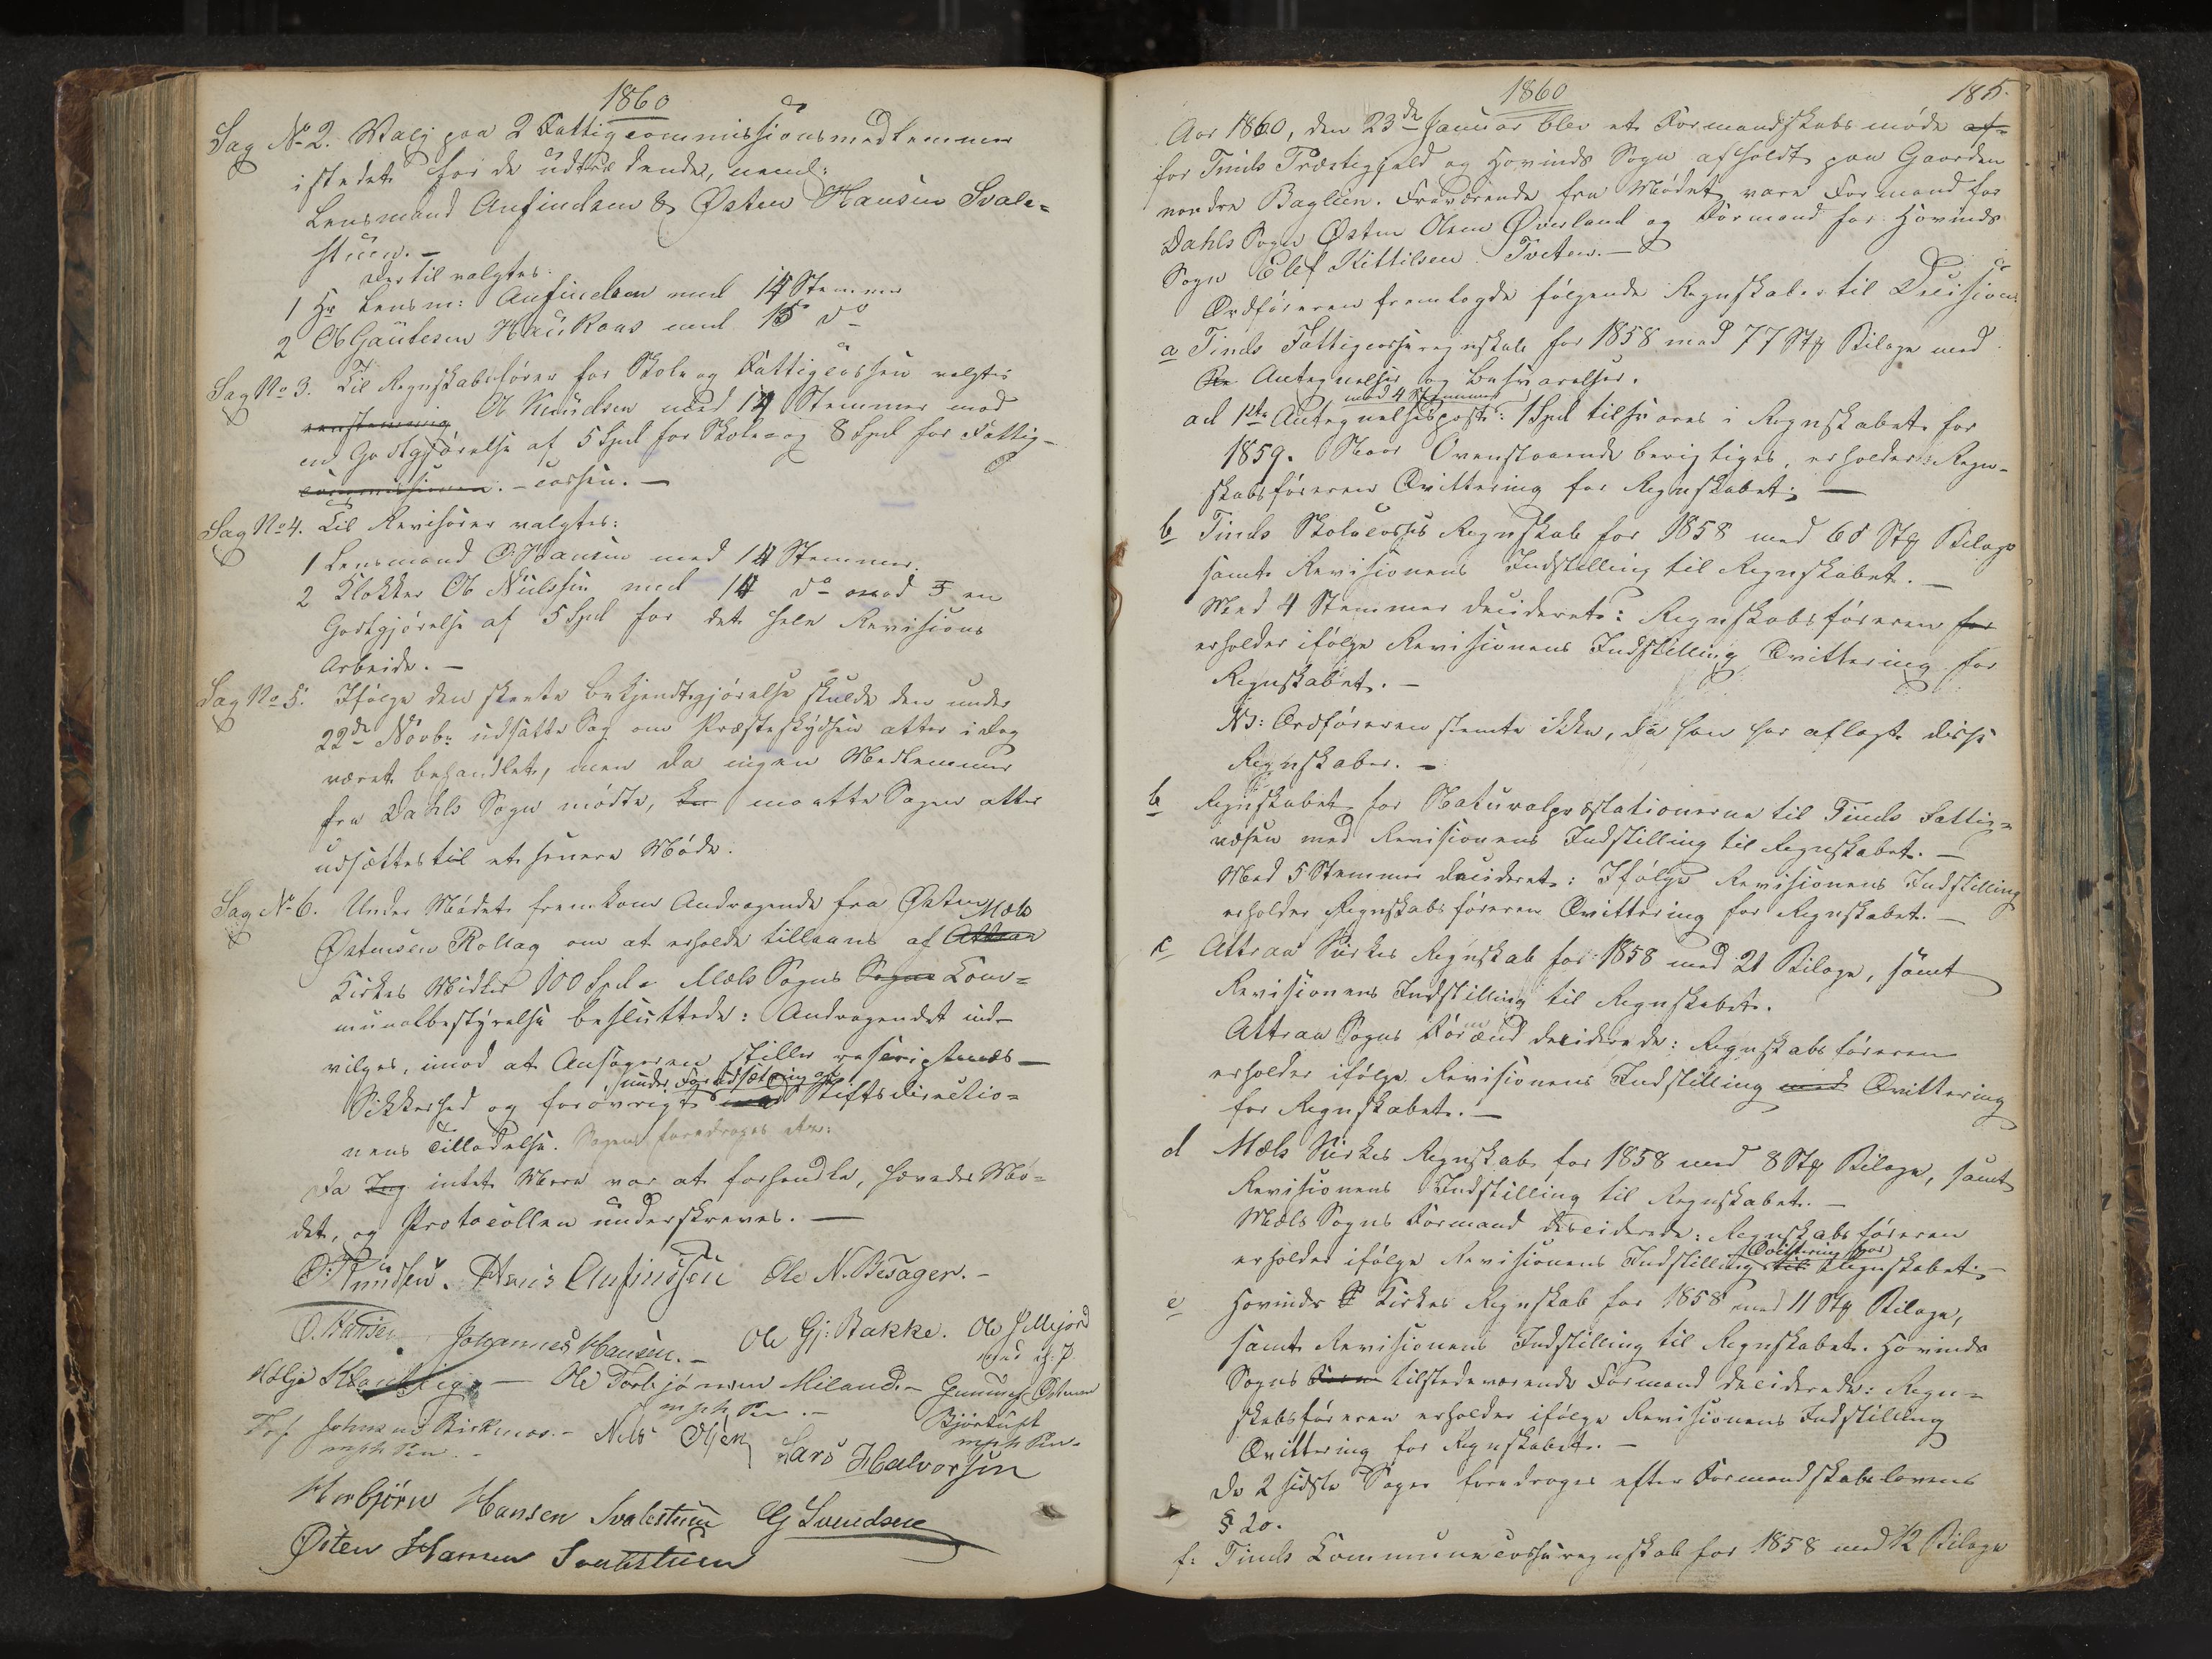 1860
Sag No 2. Valg paa 2 Fattigcommissionsmedlemmer
istedet for de udtrædende, neml:
Lensmand Anfindsen & Østen Hansen Svale-
stuen. -
Dertil valgtes:
1 Hr Lensm: Anfindsen med 14 Stemmer
2 Ol Gautesen Haukaas med 15 do
Sag No 3. Til Regnskabsfører for Skole og Fattigcassen valgtes
eenstemmig Ol Knudsen med 14 Stemmer mod
en Godtgjørelse af 5 Spd for Skole- og 8 Spd for Fattig-
commissionen. - cassen. -
Sag No 4. Til Revisorer valgtes:
1 Lensmand O. Hansen med 14 Stemmer.
2 Klokker Ol Nielssen med 14 do mod 5 en
Godtgjørelse af 5 Spd for det hele Revisions
Arbeide. -
Sag No 5. Ifølge den skeete Bekjendtgjørelse skulde den under
22de Novbr udsatte Sag om Præsteskydsen atter idag
været behandlet, men da ingen Medlemmer
fra Dahls Sogn mødte, maatte Sagen atter
udsættes til et senere Møde.
Sag No 6. Under Mødet fremkom Andragende fra Østen
Mæls
Østensen Rollag om at erholde tillaans af Attraa
Kirkes Midler 100 Spd. Mæls Sogns Sogns Com-
munalbestyrelse besluttede: Andragendet ind-
vilges, imod at Ansøgeren stiller rescriptmæs-
under Forudsætning af
Sikkerhed og forøvrigt med Stiftsdirectio-
nens Tilladelse. Sagen foredroges
Da Ing intet Mere var at forhandle, hævedes Mø-
det, og Protocollen underskreves. -
O. Knudsen. Hans Anfinssen Ole N. Besager. -
O. Hansen. Johannes Hansen. - Ole Gj: Bakke. Ole J Mejord
med p: P
Helge - Ole Torbjørnsen Miland. - Gunnuf Østensen
m p h Pen. - Bjørtuft
Johns - Nils Olsen m p h Pen.
m p h Pen. - Lars Halvorsen
Herbjørn Hansen Svalestuen G Svendsen
Østen Hansen Svalestuen
1860
185.
Aar 1860, den 23de Januar blev et Formandskabsmøde af-
for Tinds Præstegjeld og Hovinds Sogn afholdt paa Gaarden
nordre Bøglien. Fraværende fra Mødet vare Formand for
Dahls Sogn Østen Olsen Øverland og Formand for Hovinds
Sogn Elef Kittilsen Tveten. -
Ordføreren fremlagde følgende Regnskaber til Decision.
a Tinds Fattigcasseregnskab for 1858 med 77 Stk Bilage med
Re Antegnelser og Besvarelser.
med 4 Stemmer
ad 1ste Antegnelsespost: 1 Spd tilsvares i Regnskabet for
1859. Naar Ovenstaaende berigtiges, erholder Regn-
skabsføreren Qvittering for Regnskabet; -
b Tinds Skolecasses Regnskab for 1858 med 68 Stk Bilage
samt Revisionens Indstilling til Regnskabet. -
Med 4 Stemmer decideret: Regnskabsføreren for
erholder ifølge Revisionens Indstilling Qvittering for
Regnskabet. -
NB: Ordføreren stemte ikke, da han har aflagt disse
Regnskaber. -
b Regnskabet for Naturalpræstationerne til Tinds Fattig-
væsen med Revisionens Indstilling til Regnskabet. -
Med 5 Stemmer decideret: Ifølge Revisionens Indstilling
erholder Regnskabsføreren Qvittering for Regnskabet. -
c Attraa Kirkes Regnskab for 1858 med 21 Bilage, samt
Revisionens Indstilling til Regnskabet.
Attraa Sogns Formænd deciderede: Regnskabsføreren
erholder ifølge Revisionens Indstilling med Qvittering
for Regnskabet. -
d Mæls Kirkes Regnskab for 1858 med 8 Stk Bilage, samt
Revisionens Indstilling til Regnskabet. -
Mæls Sogns Formand deciderede: Regnskabsføreren
Qvittering for
erholder ifølge Revisionens Indstilling til Regnskabet; -
e Hovinds Kirkes Regnskab for 1858 med 11 Stk Bilage,
samt Revisionens Indstilling til Regnskabet. Hovinds
Sogns Form tilstedeværende Formand deciderede: Regn-
skabsføreren erholder ifølge Revisionens Indstilling
Qvittering for Regnskabet. -
De 2 sidste Sager foredroges efter Formandskabslovens
§ 20.
f: Tinds Communecasseregnskab for 1858 med 12 Bilage